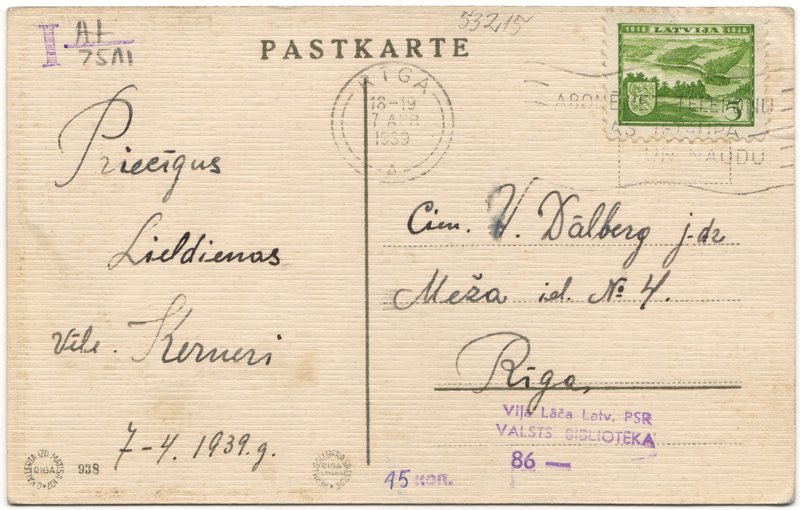 53215
I A1
75/11
PASTKARTE
1918 LATVIJA 1938
5
RĪGA
18-19
7 APR
1939
A
TELEFONU
UN NAUDU
Priecīgus
Lieldienas
Vēle. Kerneri
7-4. 1939.g.
Cien. V. Dālberg j-dz
Meža iel. № 4.
Rīga,
Viļa Lāča Latv. PSR
VALSTS BIBLIOTEKA
86 —
45 коп.
RIGA
938
RIGA